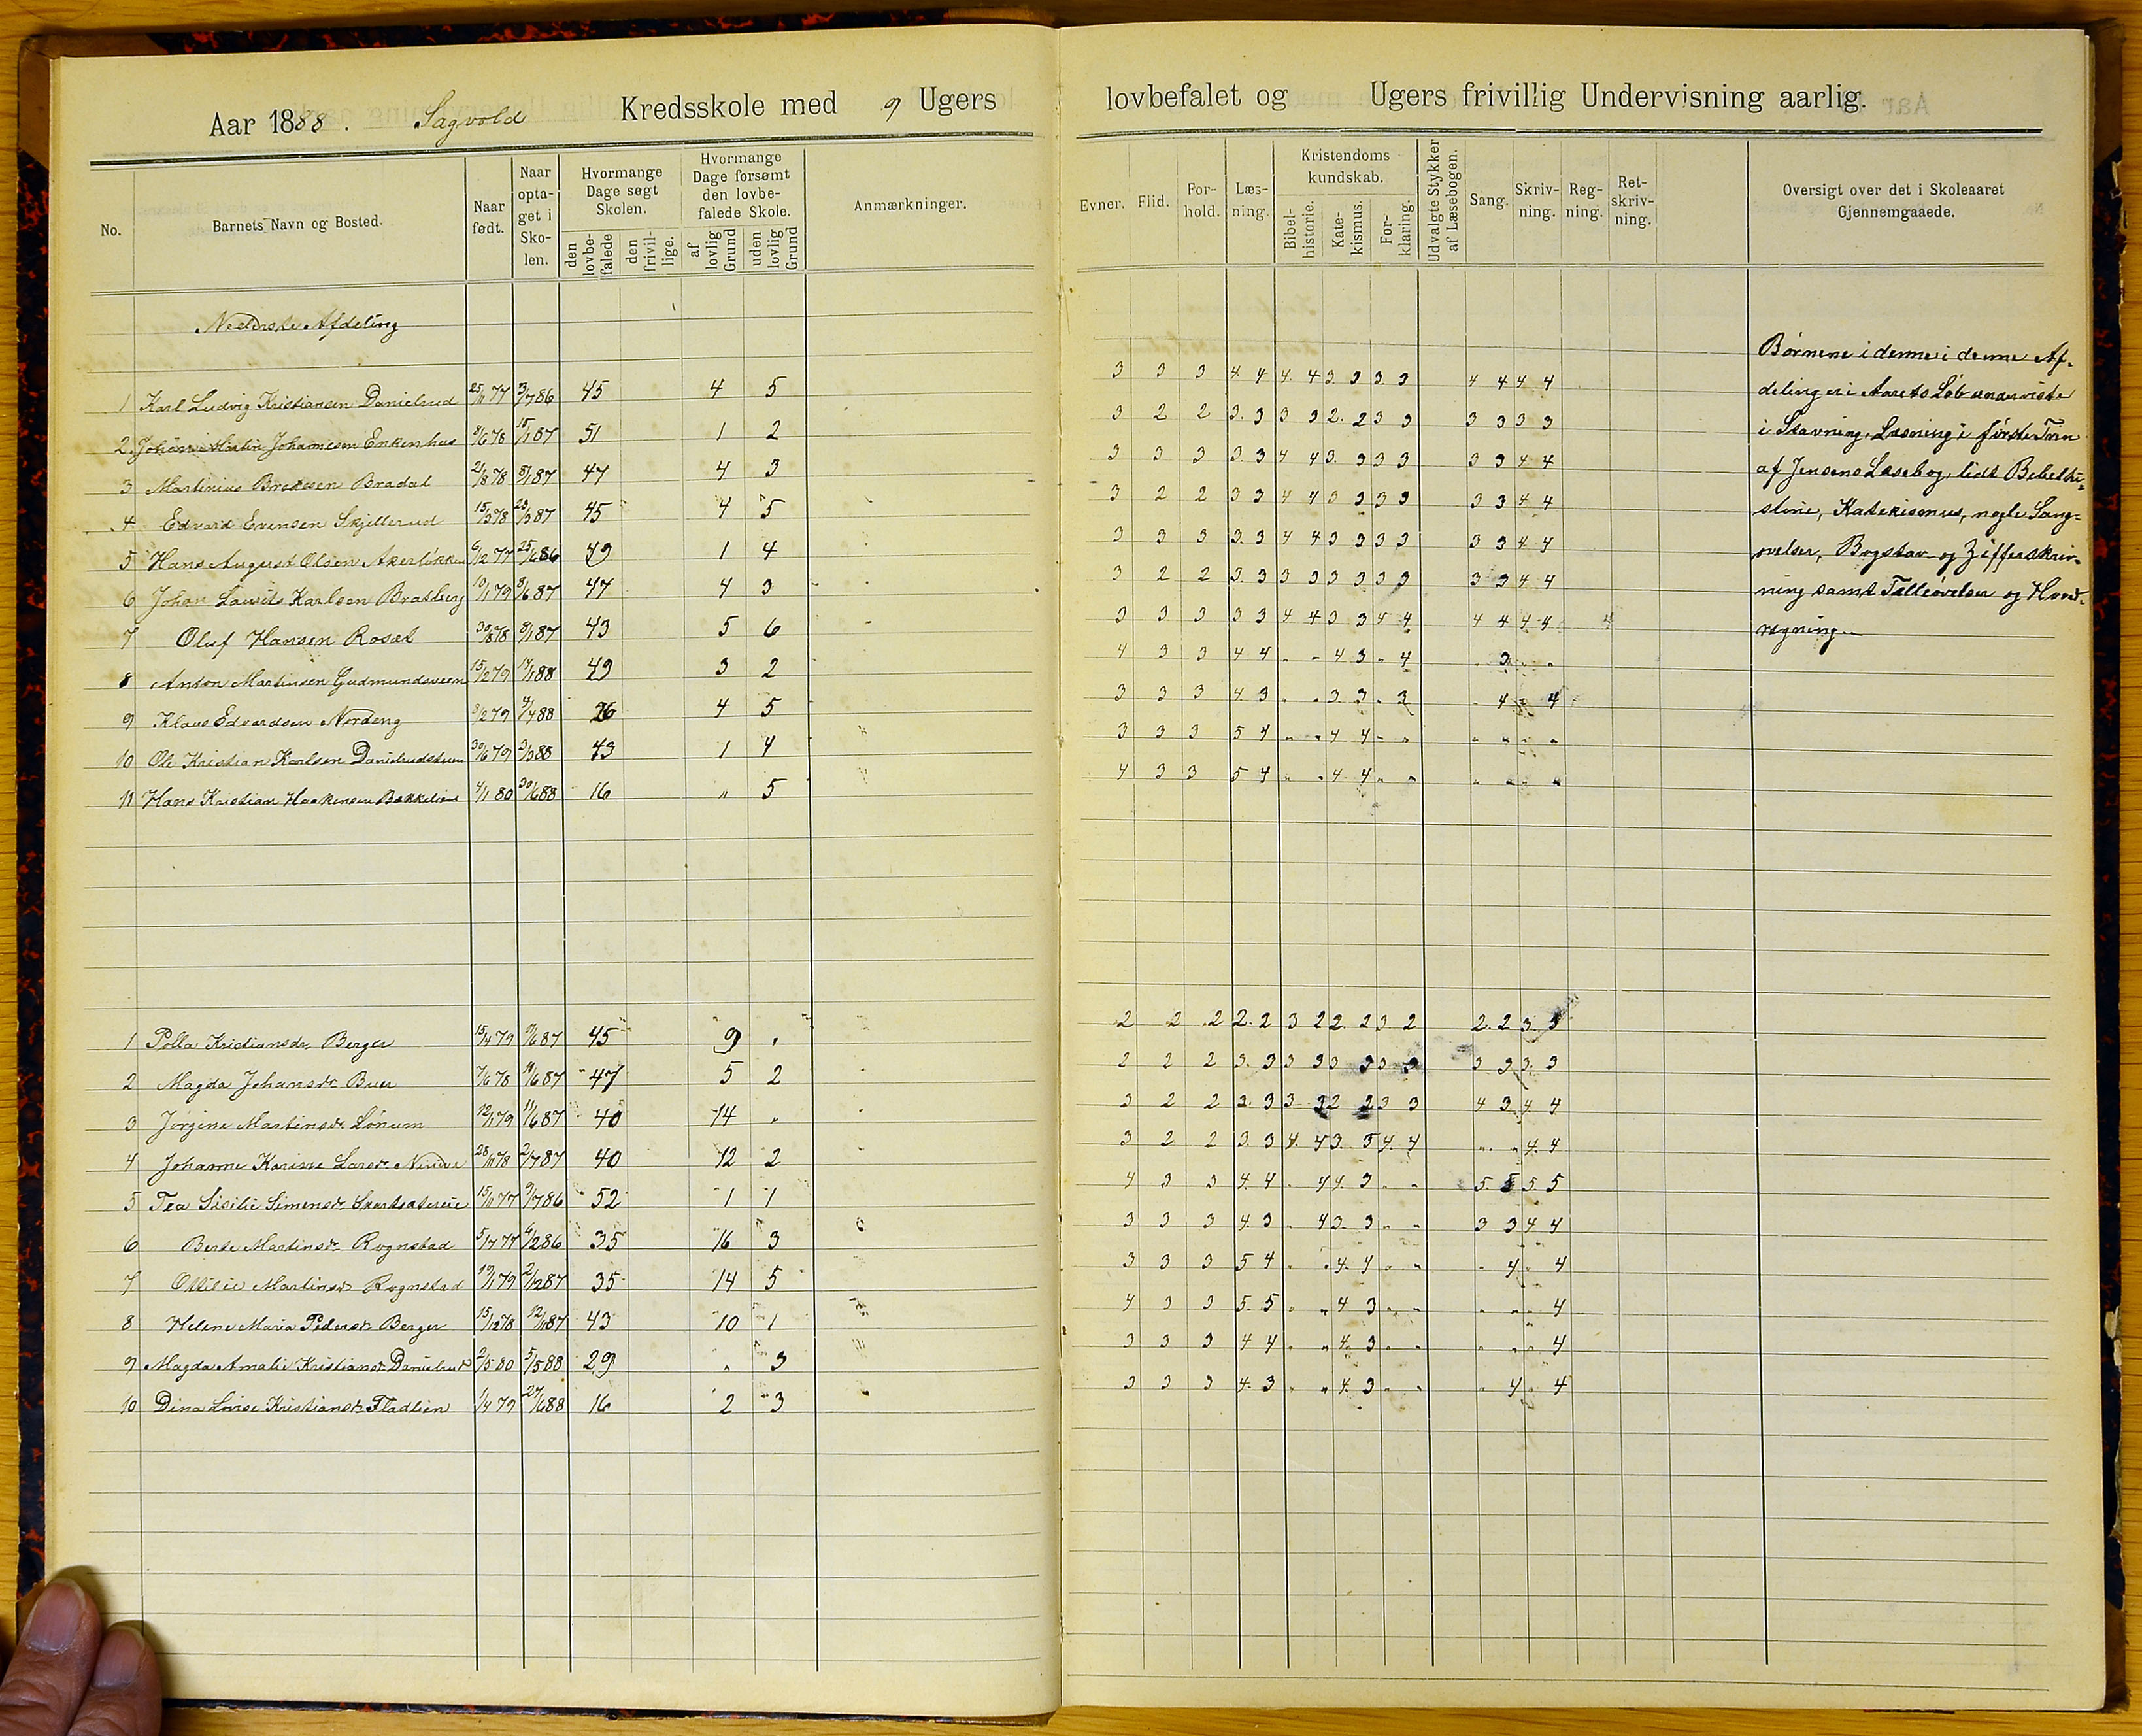 Aar 1888. Sagvold Kredsskole med 9 Ugers lovbefalet og Ugers frivillig Undervisning aarlig.
No. Barnets Navn og Bosted. Naar født. Naar optaget i Skolen. Hvormange Dage søgt Skolen. den lovbefalede den frivillige. Hvormange Dage forsømt den lovbefalede Skole. af lovlig Grund uden lovlig Grund Anmærkninger.
Evner. Flid. Forhold. Læsning. Kristendomskundskab. Bibelhistorie. Katekismus. Forklaring. Udvalgte Stykker af Læsebogen. Sang. Skrivning. Regning. Retskrivning. Oversigt over det i Skoleaaret Gjennemgaaede.
Nederste Afdeling
1 Karl Ludvig Kristiansen Danielsrud 25/11 77 3/7 86 45 4 5 3 3 3 4 4 4 4 3 3 3 3 4 4 4 4
2. Johan Martin Johannesen Enkenhus 8/6 78 18/1 87 51 1 2 3 2 2 3. 3 3 3 2. 2 3 3 3 3 3 3
3 Martinius Bredesen Bradal 2/8 78 8/1 87 47 4 3 3 3 3 3. 3 4 4 3. 3 3 3 3 3 4 4
4 Edvard Evensen Skjellerud 15/3 78 23/3 87 45 4 5 3 2 2 3 3 4 4 3 3 3 3 3 3 4 4
5 Hans August Olsen 6/12 77 25/6 86 49 1 4 3 3 3 3. 3 4 4 3 3 3 3 3 3 4 4
6 Johan Laurits Karlsen Bratberg 10/1 79 8/6 87 47 4 3 3 2 2 3. 3 3 3 3 3 3 3 3 3 4 4
7 Oluf Hansen Roset 30/8 78 8/1 87 43 5 6 3 3 3 3 3 4 4 3 3 4 4 4 4 4 4 4
8 Anton Martinsen Gudmundsveen 15/2 79 14/1 88 49 3 2 4 3 3 4 4 „ „ 4 3 „ 4 „ 3 „ „
9 Klaus Edvardsen Nordeng 8/2 79 4/4 88 26 4 5 3 3 3 4 3 „ „ 3 3 „ 3 „ 4 „ 4
10 Ole Kristian Karlsen 30/6 79 3/3 88 43 1 4 3 3 3 5 4 „ „ 4 4 „ „ „ „ „ „
11 Hans Kristian Haakensen Bakkelien 4/1 80 30/6 88 16 „ 5 4 3 3 5 4 „ „ 4 4 „ „ „ „ „ „
Børnene i denne i denne Af-
deling er i Aarets Løb underviste
i Stavning, Læsning i første Trin
af Jensens Læsebog, lidt Bibelhi-
storie, Katekismus, nogle Sang-
øvelser, Bogstav- og Zifferskriv-
ning samt Tælleøvelser og Hoved-
regning.
1 Polla Kristiansdr. Berger 15/4 79 9/6 87 45 9 „ 2 2 2 2. 2 3 2 2. 2 3 2 2. 2 3. 3
2 Magda Johansdr. Buer 7/6 78 11/6 87 47 5 2 2 2 2 3. 3 3 3 3 3 3 3 3 3 3. 3
3 Jørgine Martinsdr. Lønum 12/1 79 11/6 87 40 14 „ 3 2 2 3. 3 3 3 2 2 3 3 4 3 4. 4
4 Johanne Karine Larsdr. 28/11 78 2/7 87 40 12 2 3 2 2 3. 3 4. 4 3. 3 4. 4 „ „ 4. 4
5 Tea Sisilie Simensdr. 15/11 77 9/7 86 52 1 1 4 3 3 4. 4 „ 4 4. 3 „ „ 5. 5 5 5
6 Berte Martinsdr. Rognstad 5/7 77 6/2 86 35 16 3 3 3 3 4. 3 „ 4 3. 3 „ „ 3 3 4 4
7 Ottilie Martinsdr. Rognstad 19/1 79 2/12 87 35 14 5 3 3 3 5 4 „ „ 4. 4 „ „ „ 4 „ 4
8 Helene Maria Pedersdr. Berger 15/12 78 12/1 87 43 10 1 4 3 3 5. 5 „ „ 4 3 „ „ „ „ „ 4
9 Magda Amalie Kristiansdr. Danielsrud 2/5 80 5/5 88 29 „ 3 3 3 3 4 4 „ „ 4. 3 „ „ „ „ „ 4
10 Dina Lovise Kristiansdr. Fladlien 1/4 79 27/6 88 16 2 3 3 3 3 4. 3 „ „ 4. 3 „ „ „ 4 „ 4